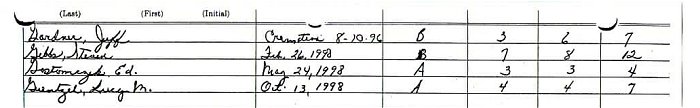 (Last) (First) (Initial)
Gardner, Jeff Cremation 8-10-96 B 3 6 7
Gebbs, Steven Feb. 26, 1998 B 7 8 12
Gostomczyk, Ed. May 24, 1998 A 3 3 4
Gientzel, Lucy M. Oct. 13, 1998 A 4 4 7